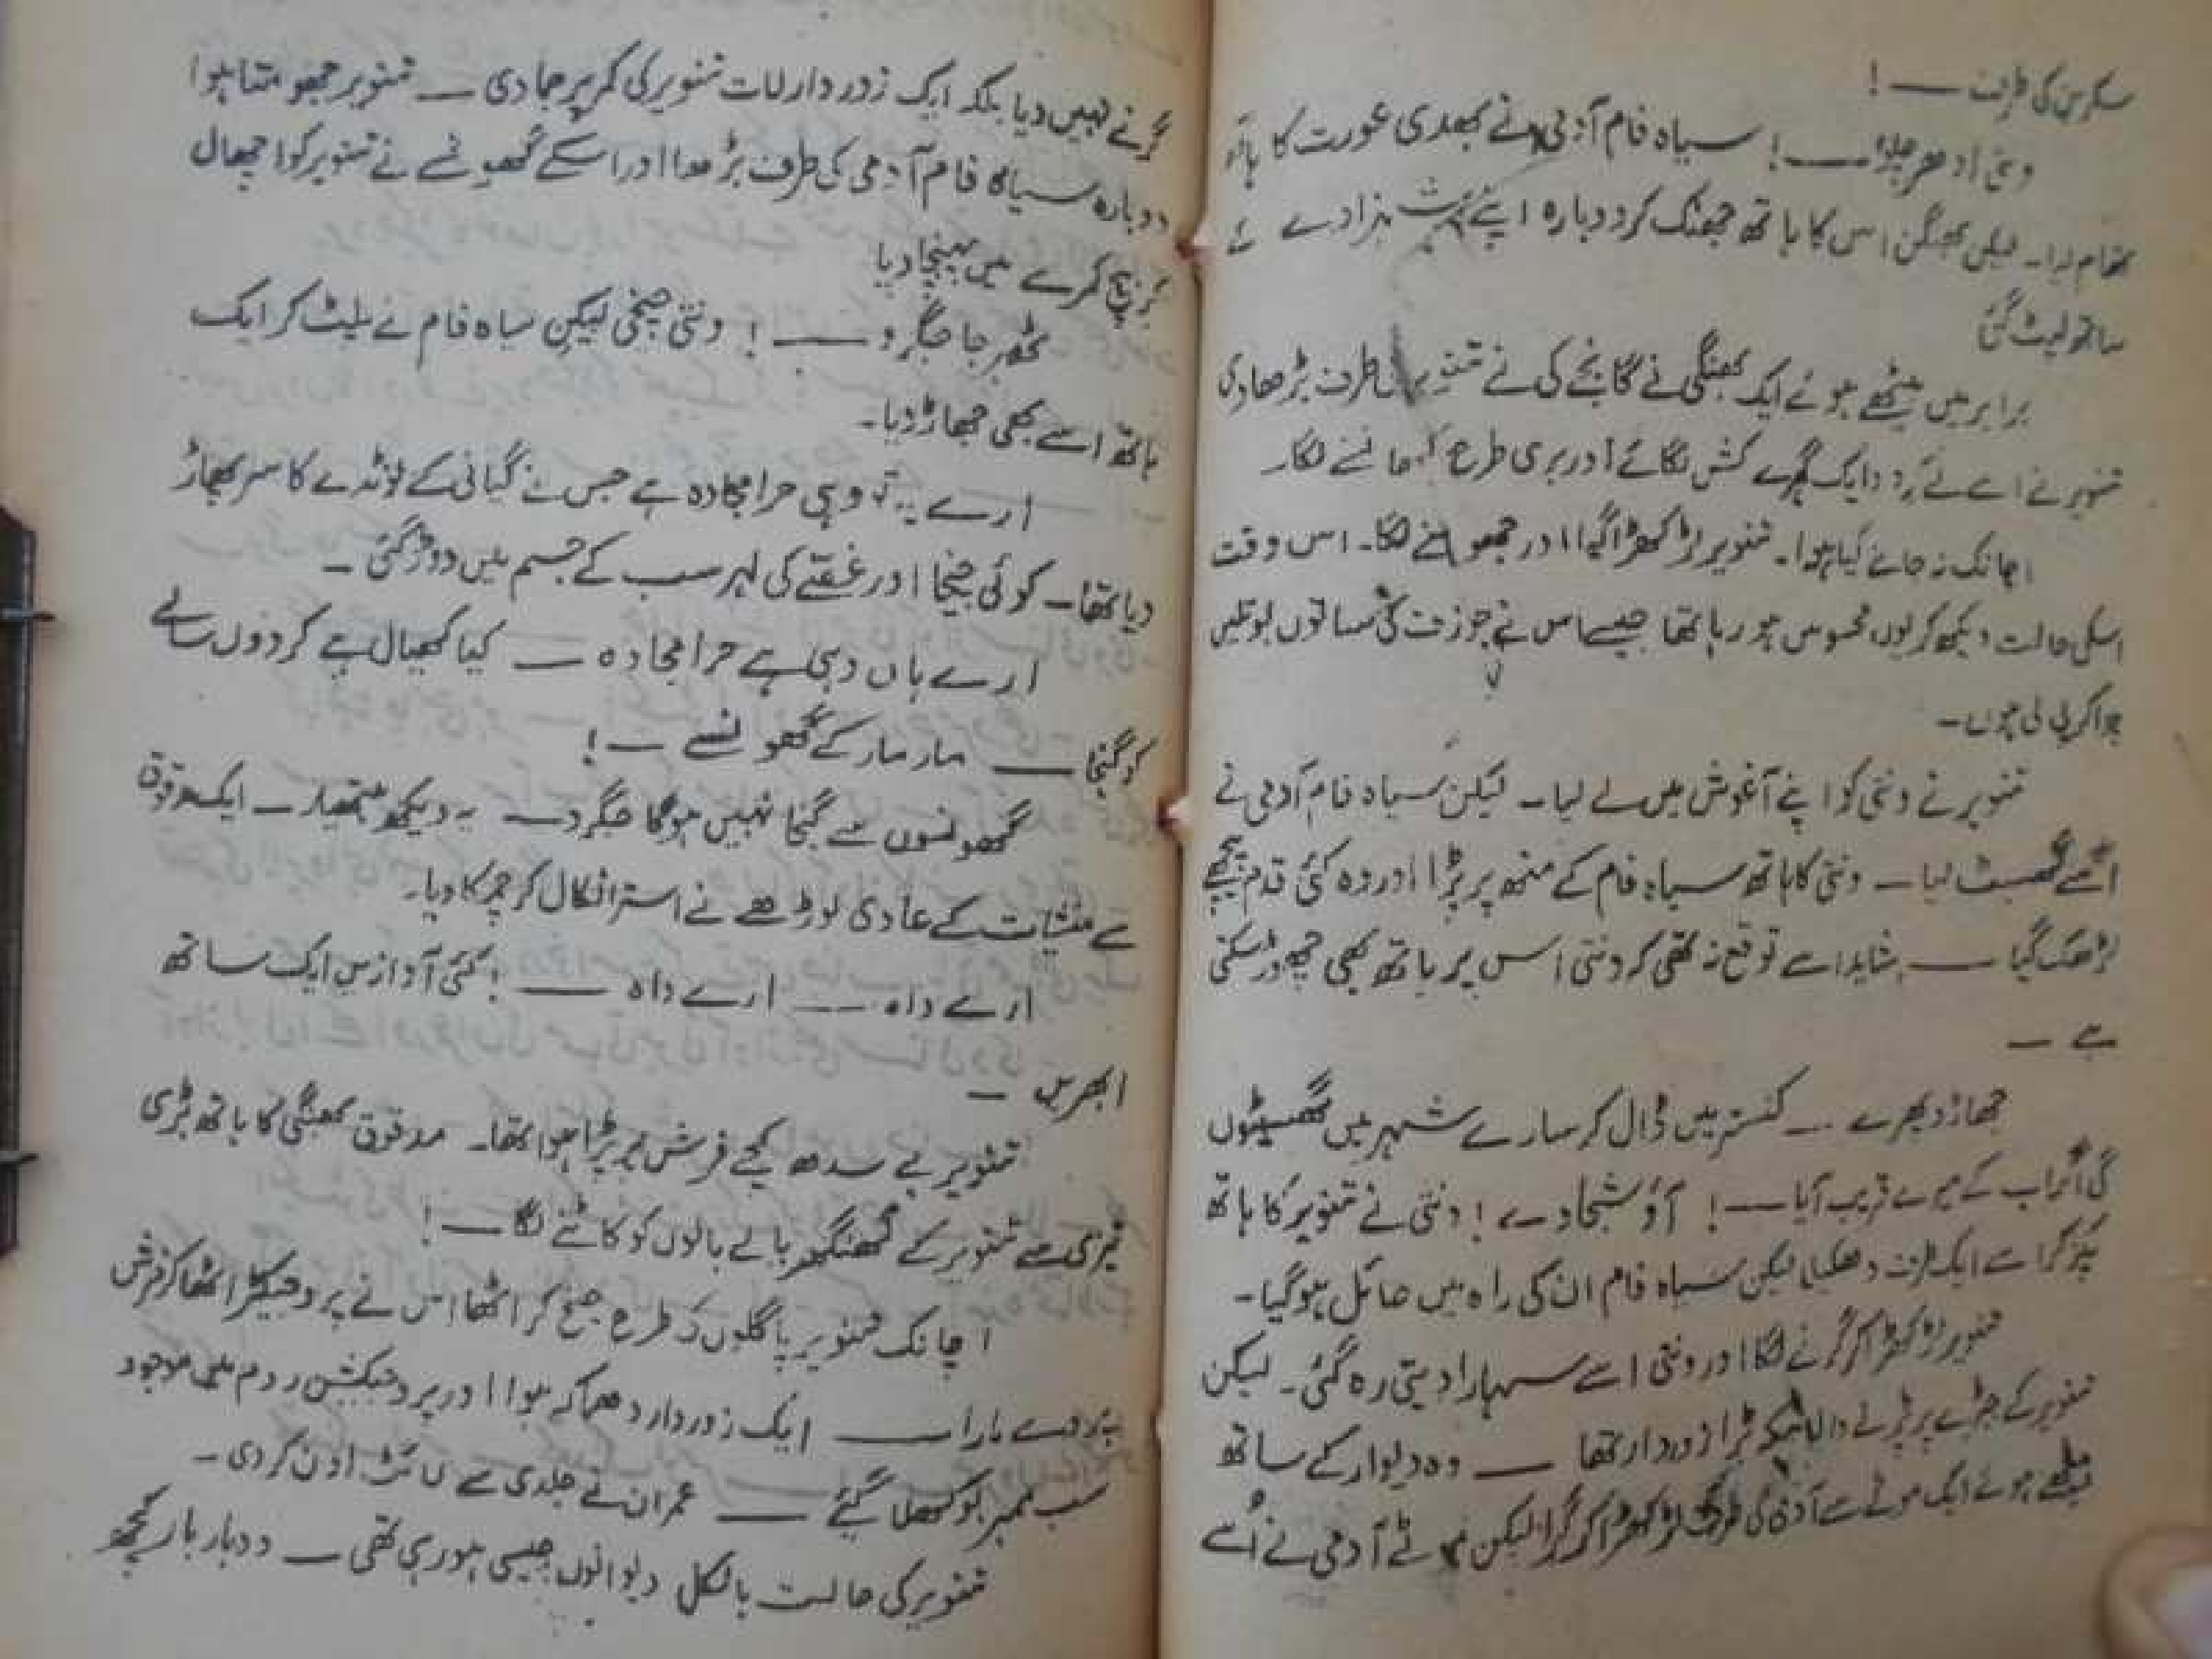 سکرین کی طرف —— !
ونتی ادھر چلو —— ! سیاہ فام آدمی نے بھدی عورت کا ہاتھ
تھام لیا۔ لیکن بھنگن اس کا ہاتھ جھٹک کر دوبارہ اپنے شہزادے کے
ساتھ لپٹ گئی
برابر میں بیٹھے ہوئے ایک بھنگی نے گانجے کی نے تنویر کی طرف بڑھا دی
تنویر نے اسے لے کر دو ایک گہرے کش لگائے اور بری طرح کھانسنے لگا۔
اچانک نہ جانے کیا ہوا۔ تنویر لڑکھڑا گیا اور جھومنے لگا۔ اس وقت
اسکی حالت دیکھ کر یوں محسوس ہو رہا تھا جیسے اس نے جوزف کی ساتوں بوتلیں
چڑا کر پی لی ہوں۔
تنویر نے ونتی کو اپنے آغوش میں لے لیا۔ لیکن سیاہ فام آدمی نے
اسے گھسیٹ لیا — ونتی کا ہاتھ سیاہ فام کے منھ پر پڑا اور وہ کئی قدم پیچھے
لڑھک گیا —— شاید اسے توقع نہ تھی کہ ونتی اس پر ہاتھ بھی چھوڑ سکتی
ہے —
جھاڑو پھرے — کنستر میں ڈال کر سارے شہر میں گھسیٹوں
گی اگر اب کے میرے قریب آیا —— ! آؤ شجادے ! ونتی نے تنویر کا ہاتھ
پکڑ کر اسے ایک طرف دھکیلا لیکن سیاہ فام ان کی راہ میں حائل ہو گیا۔
تنویر لڑکھڑا کر گرنے لگا اور ونتی اسے سہارا دیتی رہ گئی۔ لیکن
تنویر کے جبڑے پر پڑنے والا مکہ بڑا زوردار تھا —— وہ دیوار کے ساتھ
بیٹھے ہوئے ایک موٹے سے آدمی کی طرف لڑکھڑا کر گرا لیکن موٹے آدمی نے اُسے
گرنے نہیں دیا بلکہ ایک زور دار لات تنویر کی کمر پر جما دی — تنویر جھومتا ہوا
دوبارہ سیاہ فام آدمی کی طرف بڑھا اور اسکے گھونسے نے تنویر کو اچھال
کر بیچ کمرے میں پہنچا دیا
ٹھہر جا جگرو —— ! ونتی چیخی لیکن سیاہ فام نے پلیٹ کر ایک
ہاتھ اسے بھی جھاڑ دیا۔
ارے یہ تو وہی حرامجادہ ہے جس نے گیانی کے لونڈے کا سر پھاڑ
دیا تھا۔ کوئی چیخا اور غصّے کی لہر سب کے جسم میں دوڑ گئی —
ارے ہاں وہی ہے حرامجادہ — کیا کھیال ہے کر دوں سالے
کو گنجا —— مار مار کے گھونسے — !
گھونسوں سے گنجا نہیں ہوگا جگرو — یہ دیکھو ہتھیار — ایک مدقوق
سے منشیات کے عادی بوڑھے نے استرا نکال کر چمکا دیا۔
ارے واہ — ارے واہ —— ! کئی آوازیں ایک ساتھ
ابھریں —
تنویر بے سدھ کچے فرش پر پڑا ہوا تھا۔ مدقوق بھنگی کا ہاتھ بڑی
تیزی سے تنویر کے گھنگھریالے بالوں کو کاٹنے لگا — !
اچانک تنویر پاگلوں کی طرح چیخ کر اٹھا اس نے پروجیکٹر اٹھا کر فرش
پر دے مارا —— ایک زوردار دھماکہ ہوا اور پروجیکشن روم میں موجود
سب ممبر بوکھلا گئے —— عمران نے جلدی سے لائٹ اون کر دی۔
تنویر کی حالت بالکل دیوانوں جیسی ہو رہی تھی — وہ بار بار کچھ